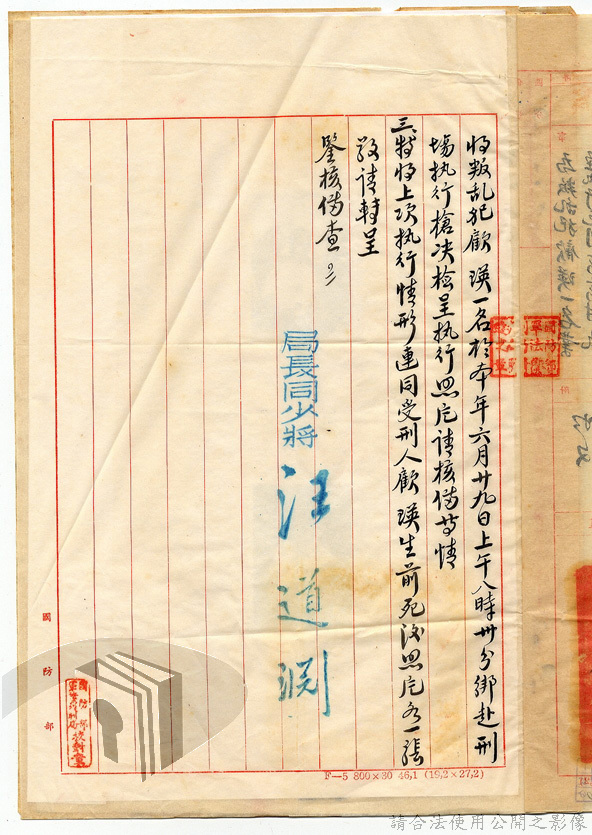 將叛乱犯歐 瑛一名於本年六月廿九日上午八時卅分綁赴刑
場执行槍决檢呈执行照片请核俻等情
三、特將上項执行情形連同受刑人歐 瑛生前死後照片各一張
敬请轉呈
鑒核俻查
局長同少將
汪道淵
國防部
校對章
F—5 800×30 46,1 (19,2×27,2)
國防部
軍法
為叛乱犯歐瑛一名業
請合法使用公開之影像